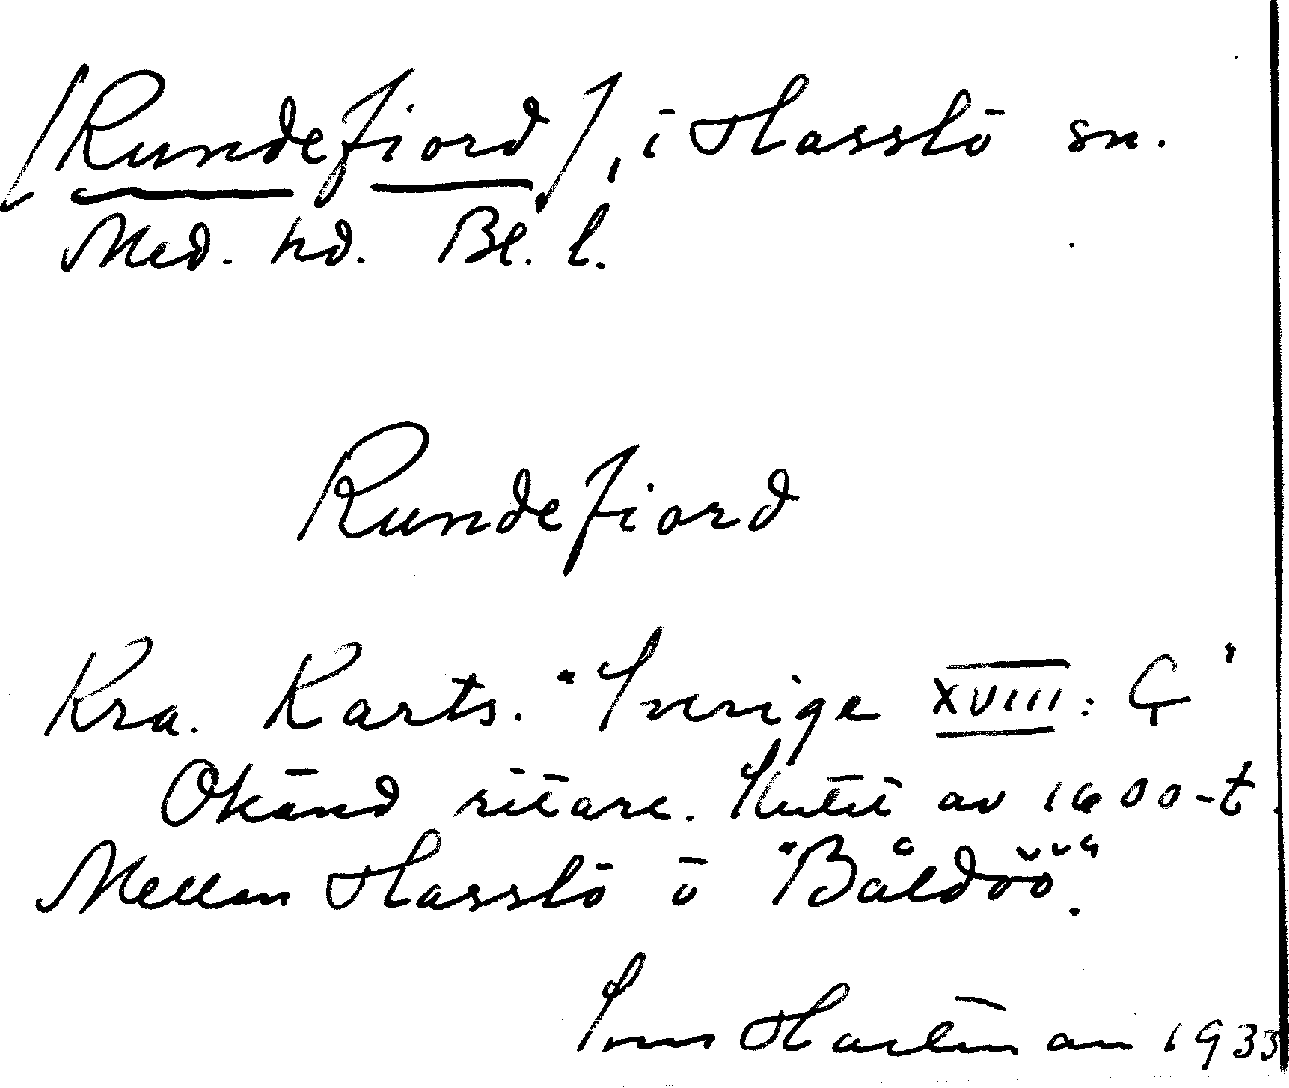 [Rundefiord], i Hasslö sn.
Med. hd. Bl. l.
Rundefiord
Kra. Karts. "Sverige XVIII: G"
Okänd ritare. Slutet av 1600-t.
Mellan Hasslö o "Båldöö".
Sven Hartman 1933